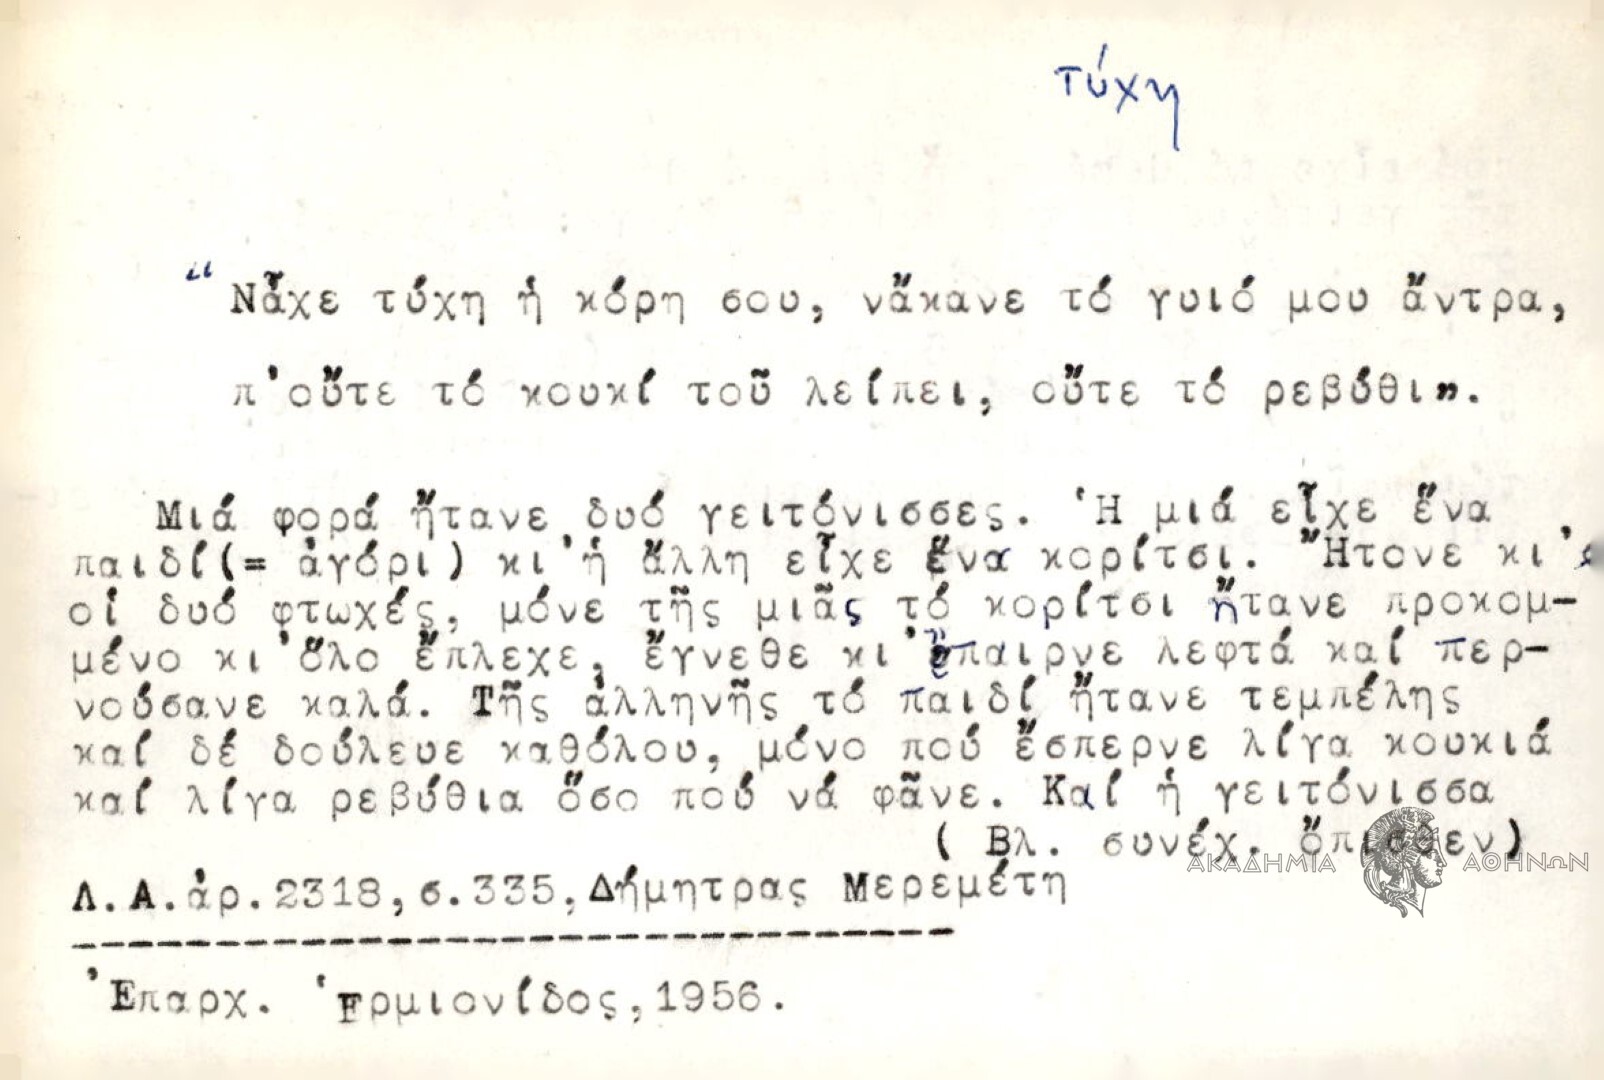 τύχη
“Νἆχε τύχη ἡ κόρη σου, νἄκανε τό γυιό μου ἄντρα,
π'οὔτε τό κουκί τοῦ λείπει, οὔτε τό ρεβύθι".
Μιά φορά ἤτανε δυό γειτόνισσες. Ἡ μιά εἶχε ἕνα
παιδί(= ἀγόρι) κι'ἡ ἄλλη εἶχε ἕνα κορίτσι. Ἤτονε κι'
οἱ δυό φτωχές, μόνε τῆς μιᾶς τό κορίτσι ἤτανε προκομ-
μένο κι'ὅλο ἔπλεχε, ἔγνεθε κι'ἔπαιρνε λεφτά καί περ-
νούσανε καλά. Τῆς ἀλληνῆς τό παιδί ἤτανε τεμπέλης
καί δέ δούλευε καθόλου, μόνο πού ἔσπερνε λίγα κουκιά
καί λίγα ρεβύθια ὅσο πού νά φᾶνε. Καί ἡ γειτόνισσα
( Βλ. συνέχ. ὄπισθεν)
ΑΚΑΔΗΜΙΑ ΑΘΗΝΩΝ
Λ.Α.ἀρ.2318,σ.335,Δήμητρας Μερεμέτη
Ἐπαρχ. Ἑρμιονίδος,1956.